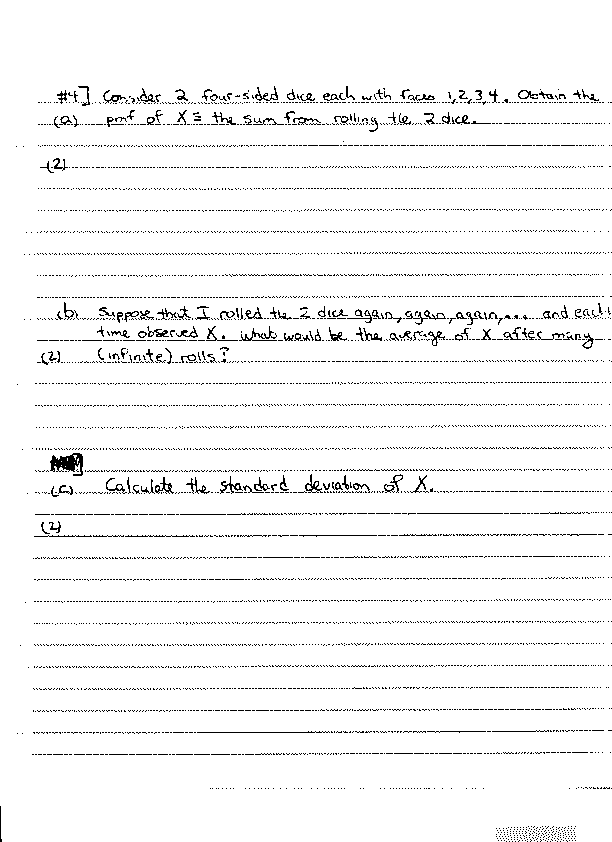 #4] Consider 2 four-sided dice each with faces 1,2,3,4. Obtain the
(a) pmf of X ≡ the sum from rolling the 2 dice.
(2)
(b) Suppose that I rolled the 2 dice again, again, again,... and each
time observed X. What would be the average of X after many
(2) (infinite) rolls?
(c) Calculate the standard deviation of X.
(2)